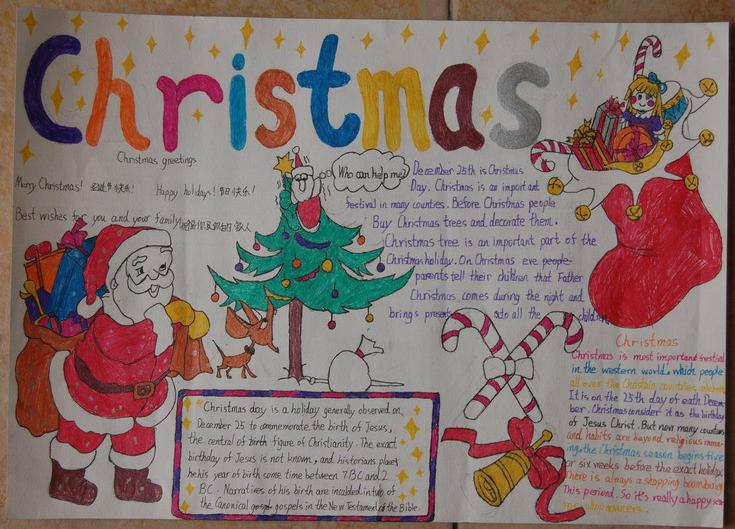 Christmas
Christmas greetings
Merry Christmas! 圣诞节快乐! Happy holidays! 节日快乐!
Best wishes for you and your family
Who can help me?
December 25th is Christmas
Day. Christmas is an important
festival in many countries. Before Christmas people
Buy Christmas trees and decorate them.
Christmas tree is an important part of the
Christmas holiday. On Christmas eve people
parents tell their children that Father
Christmas comes during the night and
brings presents to all the children
Christmas day is a holiday generally observed on
December 25 to commemorate the birth of Jesus,
the central of birth figure of Christianity. The exact
birthday of Jesus is not known, and historians place
he his year of birth some time between 7 BC and 2
BC. Narratives of his birth are in two of
the Canonical gospels in the New Testament of the Bible.
Christmas
Christmas is most important festival
in the western world. which people
all over the countries celebrate
It is on the 25th day of each Decem-
ber. Christmas consider it as the birthday
of Jesus Christ. But now many
and habits are beyond religious
the Christmas season begins five
or six weeks before the exact holiday
There is always a shopping boom
This periond. So it's really a happy